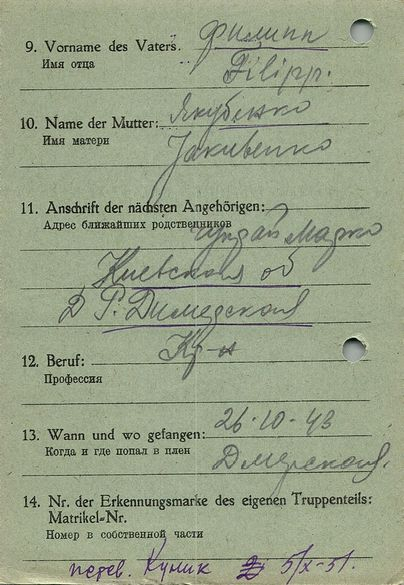 9. Vorname des Vaters: Филипп
Имя отца
Filipp.
10. Name der Mutter: Якубенко
Имя матери
Jakubenko
11. Anschrift der nächsten Angehörigen:
Адрес ближайших родственников Марко
Киевская об
Д Р. Димедская
12. Beruf: Кр-н
Профессия
13. Wann und wo gefangen: 26·10·43
Когда и где попал в плен
14. Nr. der Erkennungsmarke des eigenen Truppenteils:
Matrikel-Nr.
Номер в собственной части
перев. Кулик 5/X-51.